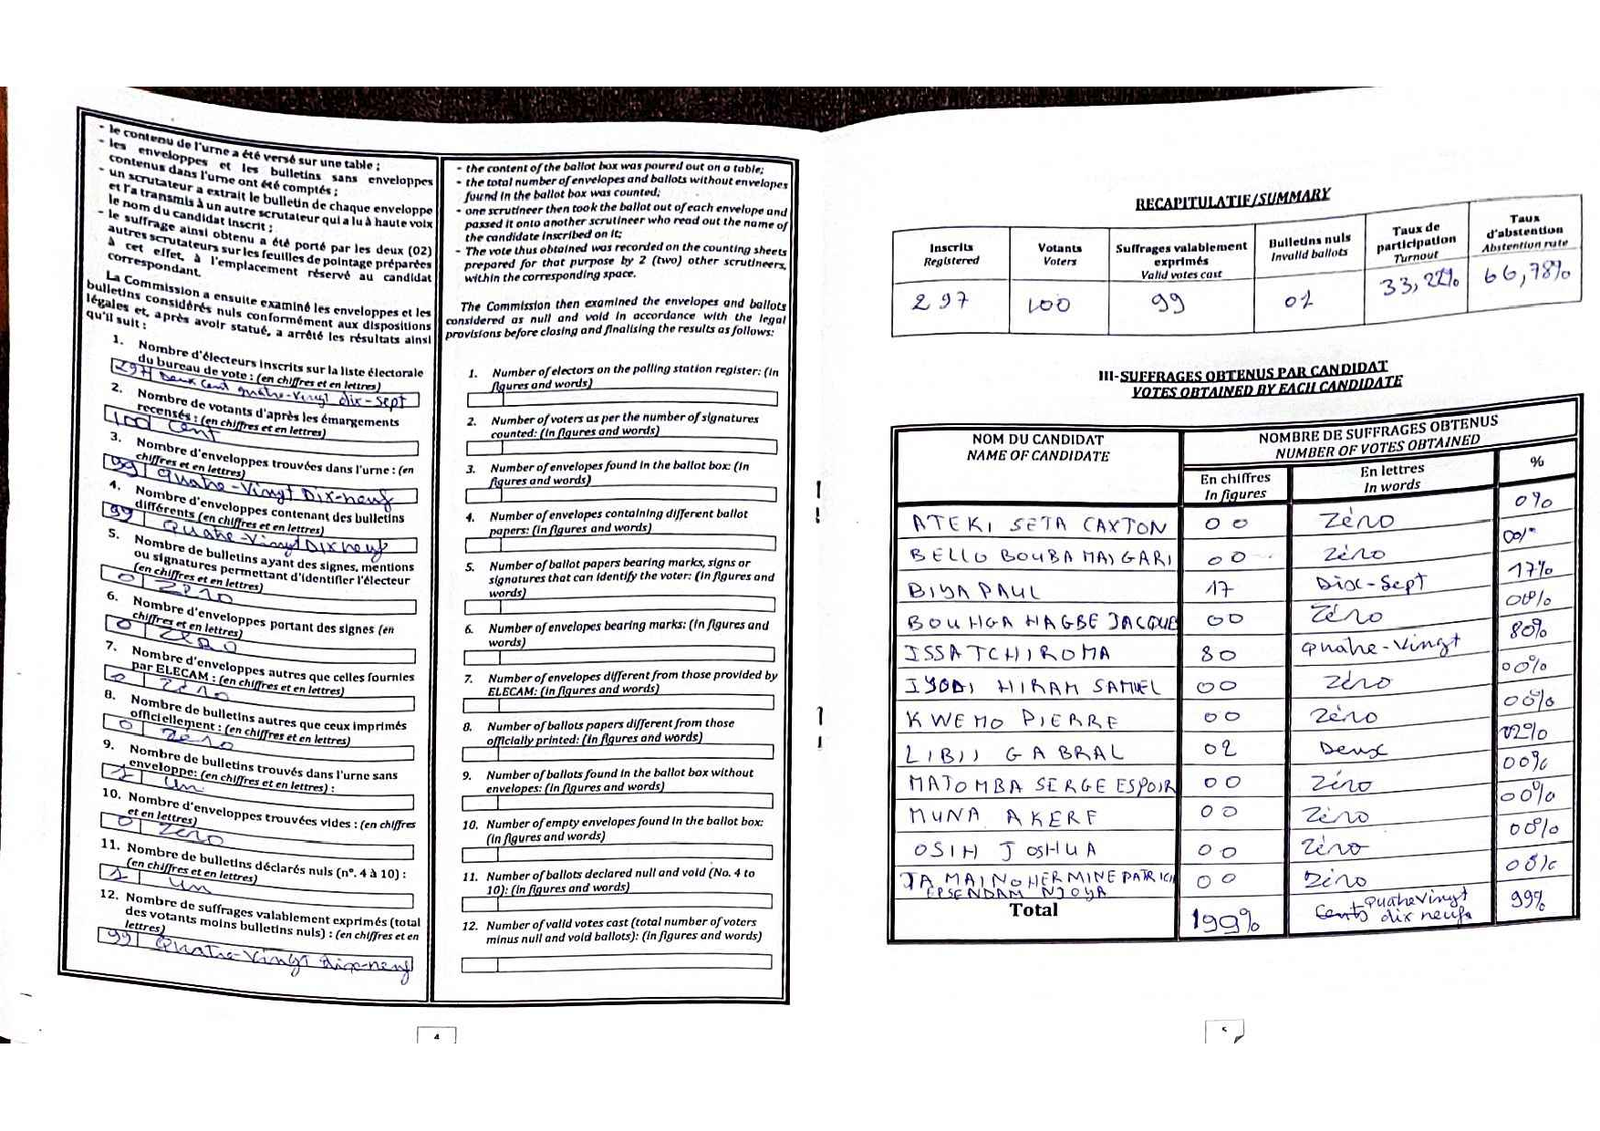 - le contenu de l'urne a été versé sur une table ;
- les enveloppes et les bulletins sans enveloppes
contenus dans l'urne ont été comptés ;
- un scrutateur a extrait le bulletin de chaque enveloppe
et l'a transmis à un autre scrutateur qui a lu à haute voix
le nom du candidat inscrit ;
- le suffrage ainsi obtenu a été porté par les deux (02)
autres scrutateurs sur les feuilles de pointage préparées
à cet effet, à l'emplacement réservé au candidat
correspondant.
La Commission a ensuite examiné les enveloppes et les
bulletins considérés nuls conformément aux dispositions
légales et, après avoir statué, a arrêté les résultats ainsi
qu'il suit :
1. Nombre d'électeurs inscrits sur la liste électorale
du bureau de vote : (en chiffres et en lettres)
297 Deux cent quatre-vingt dix-sept
2. Nombre de votants d'après les émargements
recensés : (en chiffres et en lettres)
100 cent
3. Nombre d'enveloppes trouvées dans l'urne : (en
chiffres et en lettres)
99 Quatre-Vingt Dix-neuf
4. Nombre d'enveloppes contenant des bulletins
différents (en chiffres et en lettres)
99 Quatre-Vingt Dix neuf
5. Nombre de bulletins ayant des signes, mentions
ou signatures permettant d'identifier l'électeur
(en chiffres et en lettres)
0 zéro
6. Nombre d'enveloppes portant des signes (en
chiffres et en lettres)
0 zéro
7. Nombre d'enveloppes autres que celles fournies
par ELECAM : (en chiffres et en lettres)
0 zéro
8. Nombre de bulletins autres que ceux imprimés
officiellement : (en chiffres et en lettres)
0 zéro
9. Nombre de bulletins trouvés dans l'urne sans
enveloppe: (en chiffres et en lettres) :
1 un
10. Nombre d'enveloppes trouvées vides : (en chiffres
et en lettres)
0 zéro
11. Nombre de bulletins déclarés nuls (n°. 4 à 10) :
(en chiffres et en lettres)
1 un
12. Nombre de suffrages valablement exprimés (total
des votants moins bulletins nuls) : (en chiffres et en
lettres)
99 Quatre-Vingt Dix-neuf
- the content of the ballot box was poured out on a table;
- the total number of envelopes and ballots without envelopes
found in the ballot box was counted;
- one scrutineer then took the ballot out of each envelope and
passed it onto another scrutineer who read out the name of
the candidate inscribed on it;
- The vote thus obtained was recorded on the counting sheets
prepared for that purpose by 2 (two) other scrutineers,
within the corresponding space.
The Commission then examined the envelopes and ballots
considered as null and void in accordance with the legal
provisions before closing and finalising the results as follows:
1. Number of electors on the polling station register: (in
figures and words)
2. Number of voters as per the number of signatures
counted: (in figures and words)
3. Number of envelopes found in the ballot box: (in
figures and words)
4. Number of envelopes containing different ballot
papers: (in figures and words)
5. Number of ballot papers bearing marks, signs or
signatures that can identify the voter: (in figures and
words)
6. Number of envelopes bearing marks: (in figures and
words)
7. Number of envelopes different from those provided by
ELECAM: (in figures and words)
8. Number of ballots papers different from those
officially printed: (in figures and words)
9. Number of ballots found in the ballot box without
envelopes: (in figures and words)
10. Number of empty envelopes found in the ballot box:
(in figures and words)
11. Number of ballots declared null and void (No. 4 to
10): (in figures and words)
12. Number of valid votes cast (total number of voters
minus null and void ballots): (in figures and words)
4
RECAPITULATIF/SUMMARY
Inscrits Registered | Votants Voters | Suffrages valablement exprimés Valid votes cast | Bulletins nuls Invalid ballots | Taux de participation Turnout | Taux d'abstention Abstention rate
297 | 100 | 99 | 01 | 33,22% | 66,78%
III-SUFFRAGES OBTENUS PAR CANDIDAT
VOTES OBTAINED BY EACH CANDIDATE
NOM DU CANDIDAT NAME OF CANDIDATE | NOMBRE DE SUFFRAGES OBTENUS NUMBER OF VOTES OBTAINED
En chiffres In figures | En lettres In words | %
ATEKI SETA CAXTON | 00 | Zéro | 0%
BELLO BOUBA MAIGARI | 00 | zéro | 00%
BIYA PAUL | 17 | Dix-Sept | 17%
BOUHGA HAGBE JACQUE | 00 | Zéro | 00%
ISSA TCHIROMA | 80 | quatre-Vingt | 80%
IYODI HIRAM SAMUEL | 00 | Zéro | 00%
KWEMO PIERRE | 00 | Zéro | 00%
LIBII GABRAL | 02 | Deux | 02%
MATOMBA SERGE ESPOIR | 00 | Zéro | 00%
MUNA AKERE | 00 | Zéro | 00%
OSIH JOSHUA | 00 | Zéro | 00%
TA MAINO HERMINE PATRICI EPSENDAM NJOYA | 00 | Zéro | 00%
Total | 199% | Cents quatre Vingt dix neuf | 99%
5